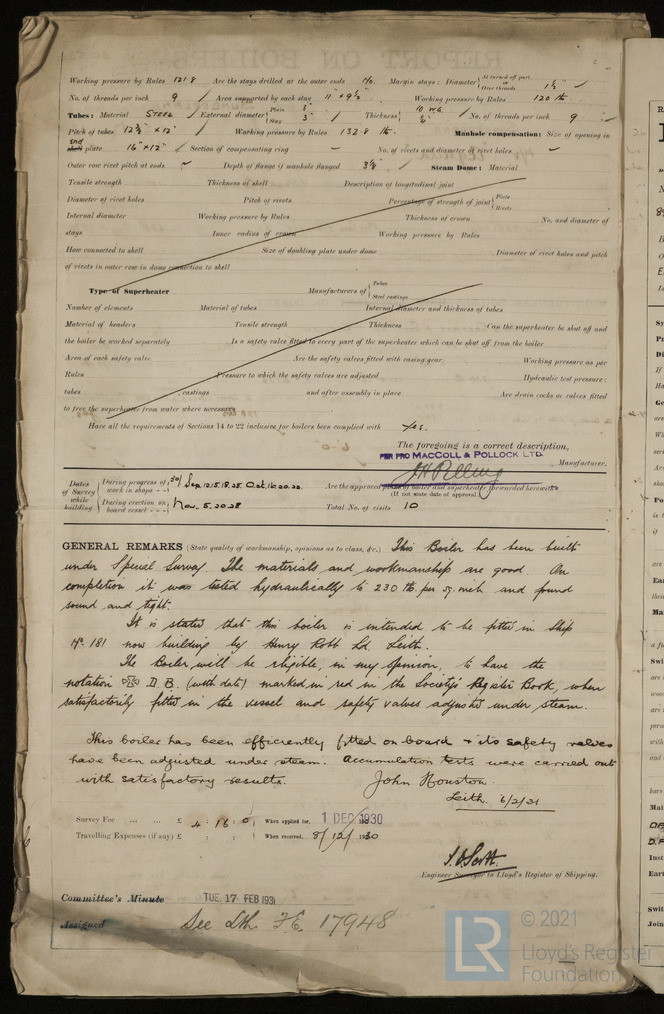 Working pressure by Rules 121.8 Are the stays drilled at the outer ends No. Margin stays: Diameter { At turned off part, or Over threads 1½"
No. of threads per inch 9 Area supported by each stay 11" × 9½" Working pressure by Rules 120 lb.
Tubes: Material STEEL External diameter { Plain 3" Stay 3" Thickness { 10 WG No. of threads per inch 9
Pitch of tubes Working pressure by Rules 132.8 lb. Manhole compensation: Size of opening in
end shell plate 16" × 12" Section of compensating ring – No. of rivets and diameter of rivet holes –
Outer row rivet pitch at ends – Depth of flange if manhole flanged Steam Dome: Material
Tensile strength Thickness of shell Description of longitudinal joint
Diameter of rivet holes Pitch of rivets Percentage of strength of joint { Plate Rivets
Internal diameter Working pressure by Rules Thickness of crown No. and diameter of
stays Inner radius of crown Working pressure by Rules
How connected to shell Size of doubling plate under dome Diameter of rivet holes and pitch
of rivets in outer row in dome connection to shell
Type of Superheater Manufacturers of { Tubes Steel castings
Number of elements Material of tubes Internal diameter and thickness of tubes
Material of headers Tensile strength Thickness Can the superheater be shut off and
the boiler be worked separately Is a safety valve fitted to every part of the superheater which can be shut off from the boiler
Area of each safety valve Are the safety valves fitted with easing gear Working pressure as per
Rules Pressure to which the safety valves are adjusted Hydraulic test pressure:
tubes , castings and after assembly in place Are drain cocks or valves fitted
to free the superheater from water where necessary
Have all the requirements of Sections 14 to 22 inclusive for boilers been complied with Yes.
The foregoing is a correct description,
PER PRO MACCOLL & POLLOCK LTD.
Manufacturer.
Dates of Survey while building { During progress of work in shops - - } Sep. 12.15.18.25. Oct. 16.20.22. Are the approved plans of boiler and superheater forwarded herewith
(If not state date of approval.)
During erection on board vessel - - - } Nov. 5.20.28 Total No. of visits 10
GENERAL REMARKS (State quality of workmanship, opinions as to class, &c.) This Boiler has been built
under Special Survey. The materials and workmanship are good. On
completion it was tested hydraulically to 230 lb. per sq. inch and found
sound and tight.
It is stated that this boiler is intended to be fitted in Ship
No. 181 now building by Henry Robb Ld. Leith.
The Boiler will be eligible, in my opinion, to have the
notation ✠ D.B. (with date) marked in red in the Society's Register Book, when
satisfactorily fitted in the vessel and safety valves adjusted under steam.
This boiler has been efficiently fitted on board & its safety valves
have been adjusted under steam. Accumulation tests were carried out
with satisfactory results. John Houston.
Leith. 6/2/31
Survey Fee ... ... £ 4 : 16 : 0 When applied for, 1 DEC 1930
Travelling Expenses (if any) £ : : When received, 8/12/1930
Engineer Surveyor to Lloyd's Register of Shipping.
Committee's Minute TUE. 17 FEB 1931
Assigned See Lth. F.E. 17948
LR © 2021
Lloyd's Register
Foundation